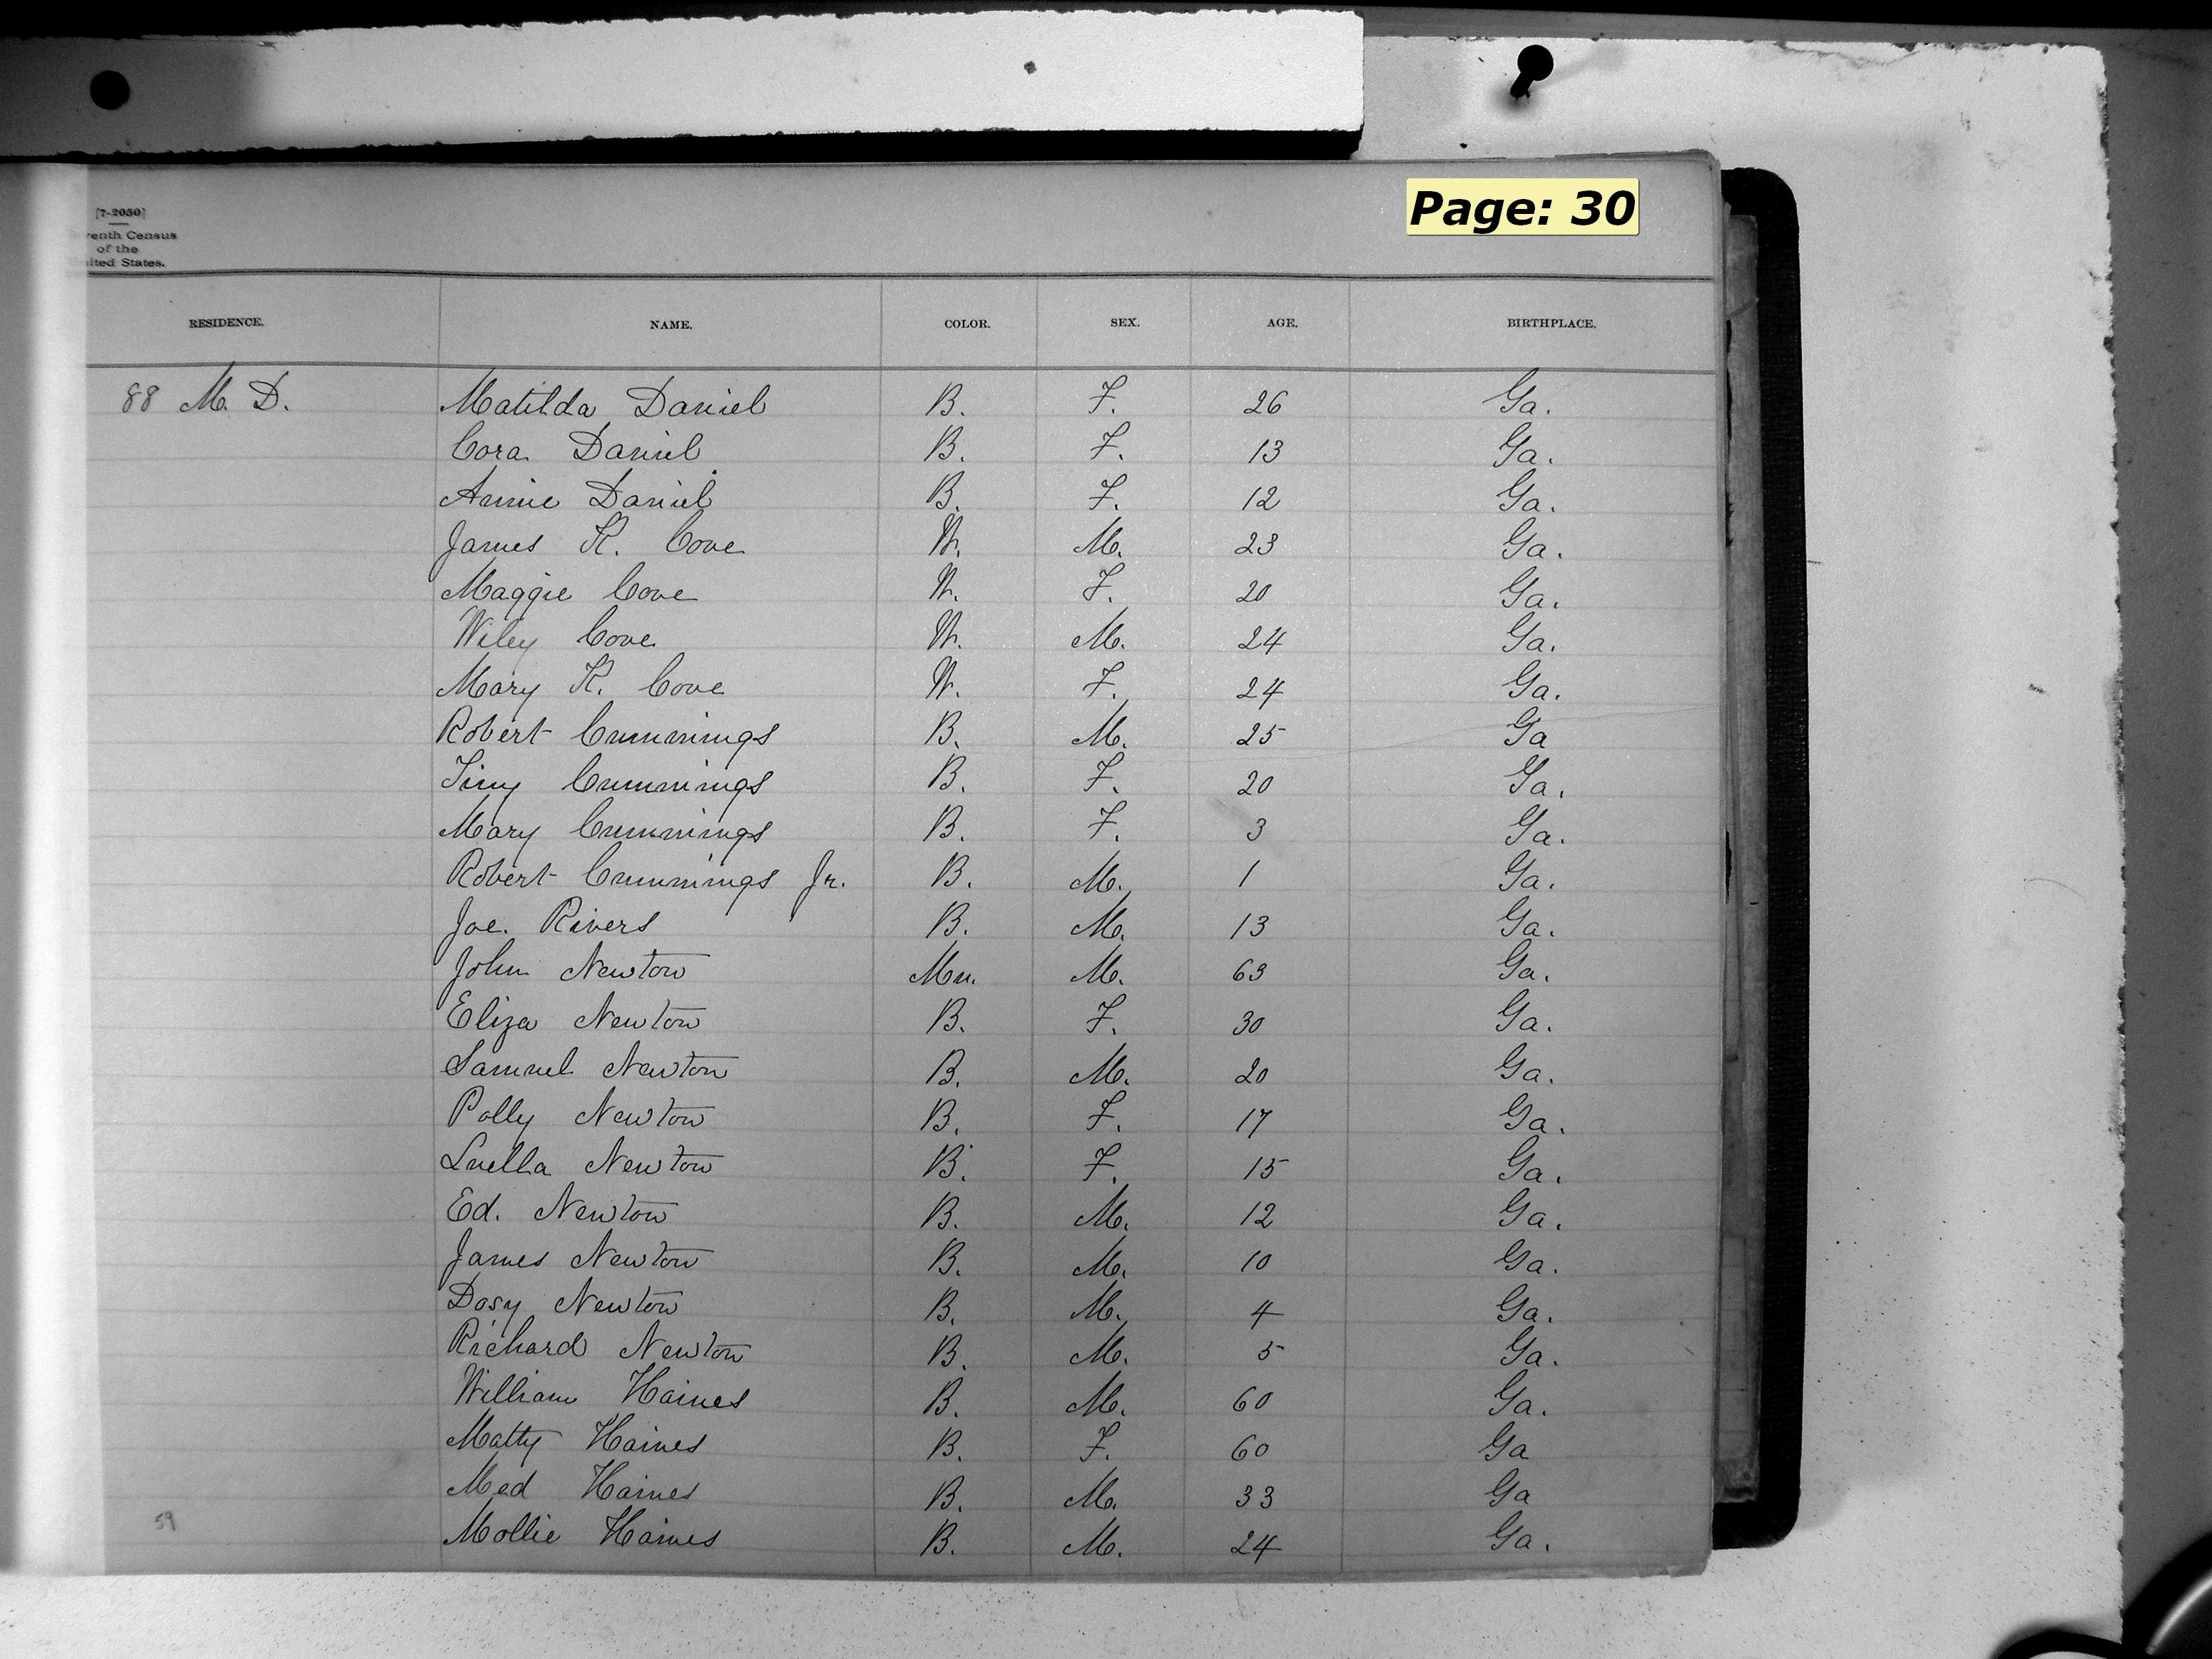 Page: 30
[7-2050]
venth Census
of the
ited States.
RESIDENCE. NAME. COLOR. SEX. AGE. BIRTHPLACE.
88 M. D. Matilda Daniel B. F. 26 Ga.
Cora Daniel B. F. 13 Ga.
Annie Daniel B. F. 12 Ga.
James K. Cone W. M. 23 Ga.
Maggie Cone W. F. 20 Ga.
Wiley Cone W. M. 24 Ga.
Mary K. Cone W. F. 24 Ga.
Robert Cummings B. M. 25 Ga
Tiny Cummings B. F. 20 Ga.
Mary Cummings B. F. 3 Ga.
Robert Cummings Jr. B. M. 1 Ga.
Joe. Rivers B. M. 13 Ga.
John Newton Mu. M. 63 Ga.
Eliza Newton B. F. 30 Ga.
Samuel Newton B. M. 20 Ga.
Polly Newton B. F. 17 Ga.
Luella Newton B. F. 15 Ga.
Ed. Newton B. M. 12 Ga.
James Newton B. M. 10 Ga.
Dosy Newton B. M. 4 Ga.
Richard Newton B. M. 5 Ga.
William Haines B. M. 60 Ga.
Matty Haines B. F. 60 Ga
Med Haines B. M. 33 Ga
Mollie Haines B. M. 24 Ga.
59